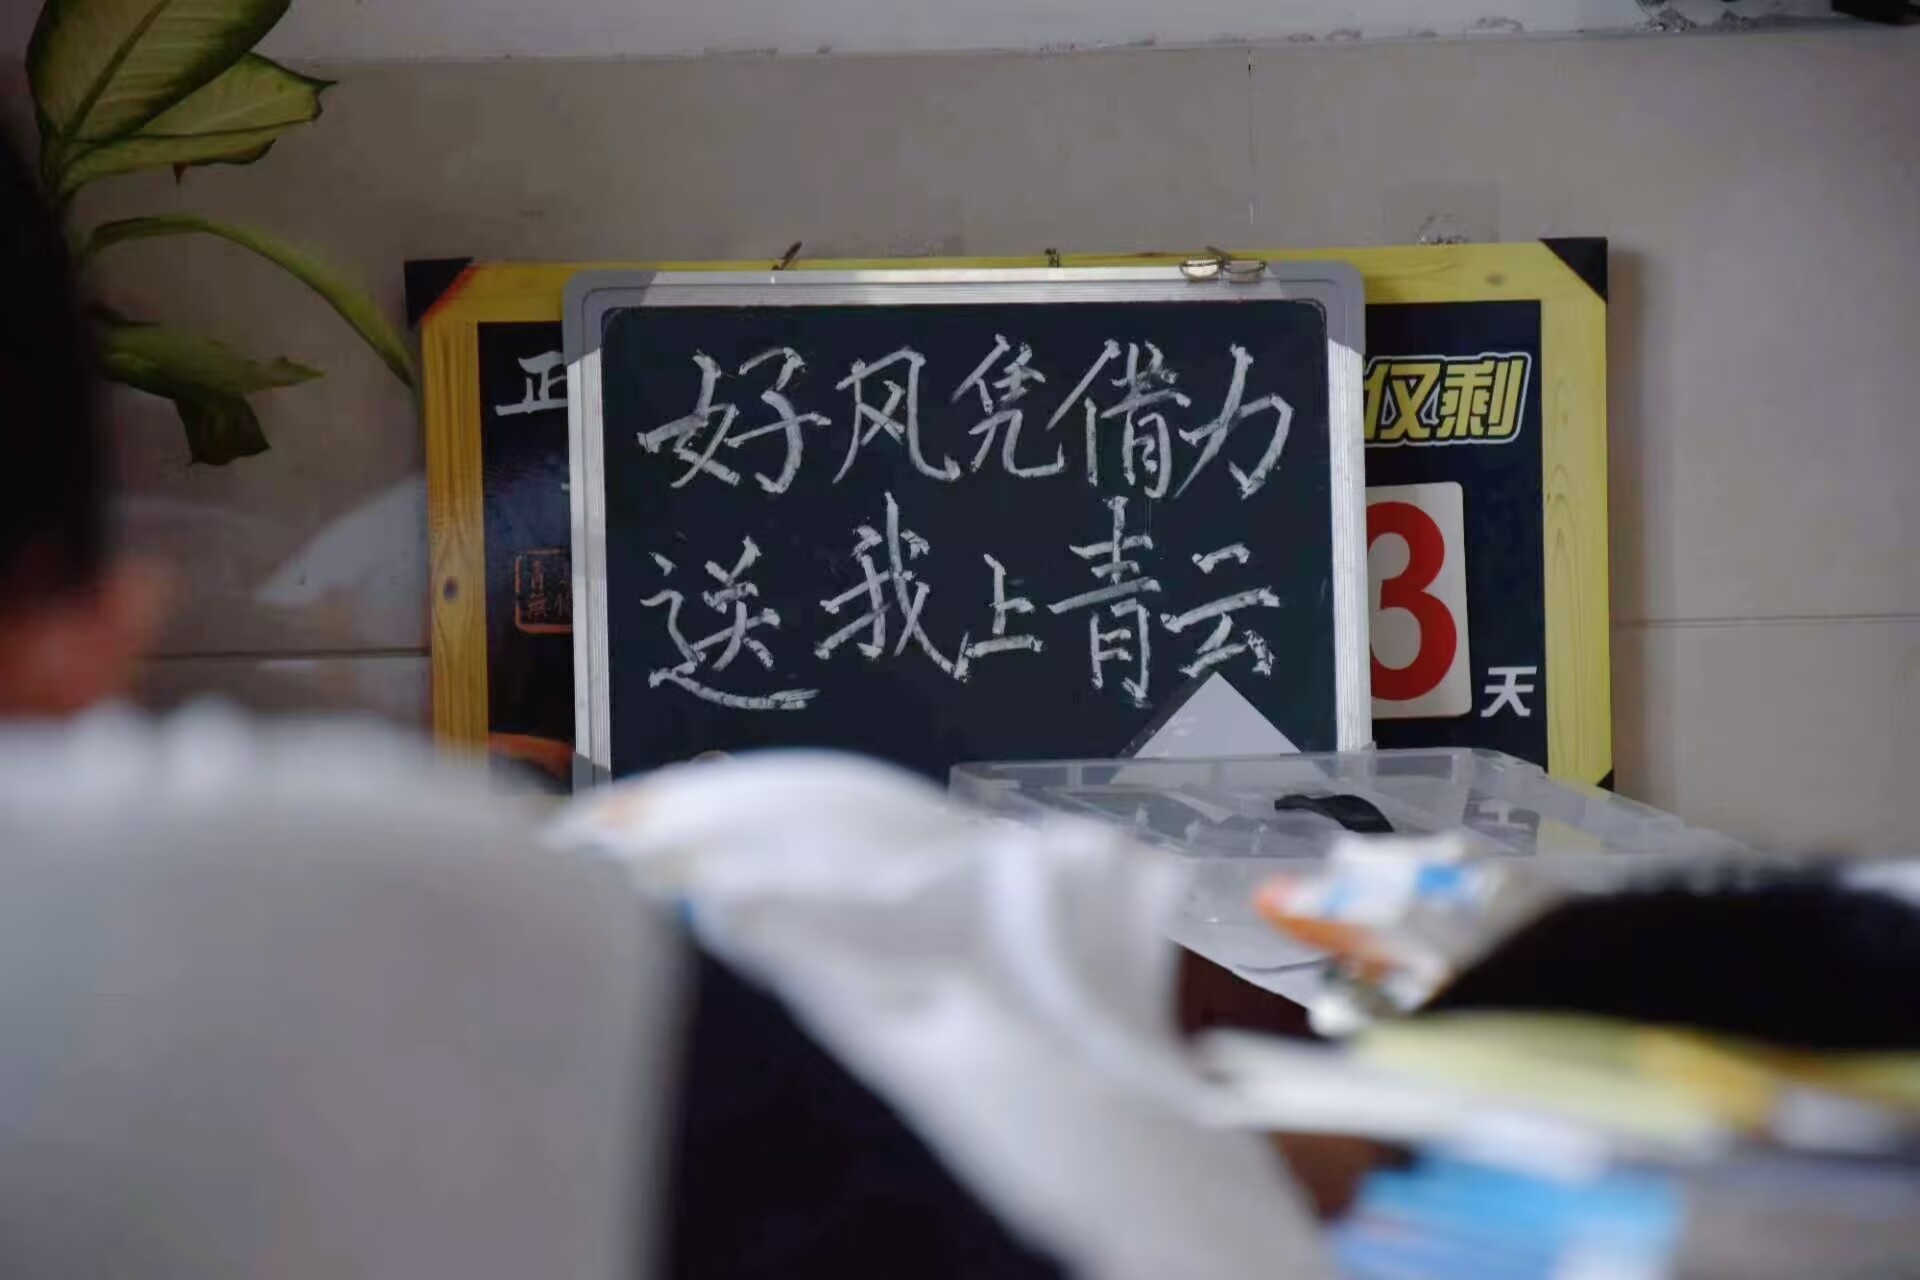 好风凭借力
送我上青云
正
仅剩
3
天